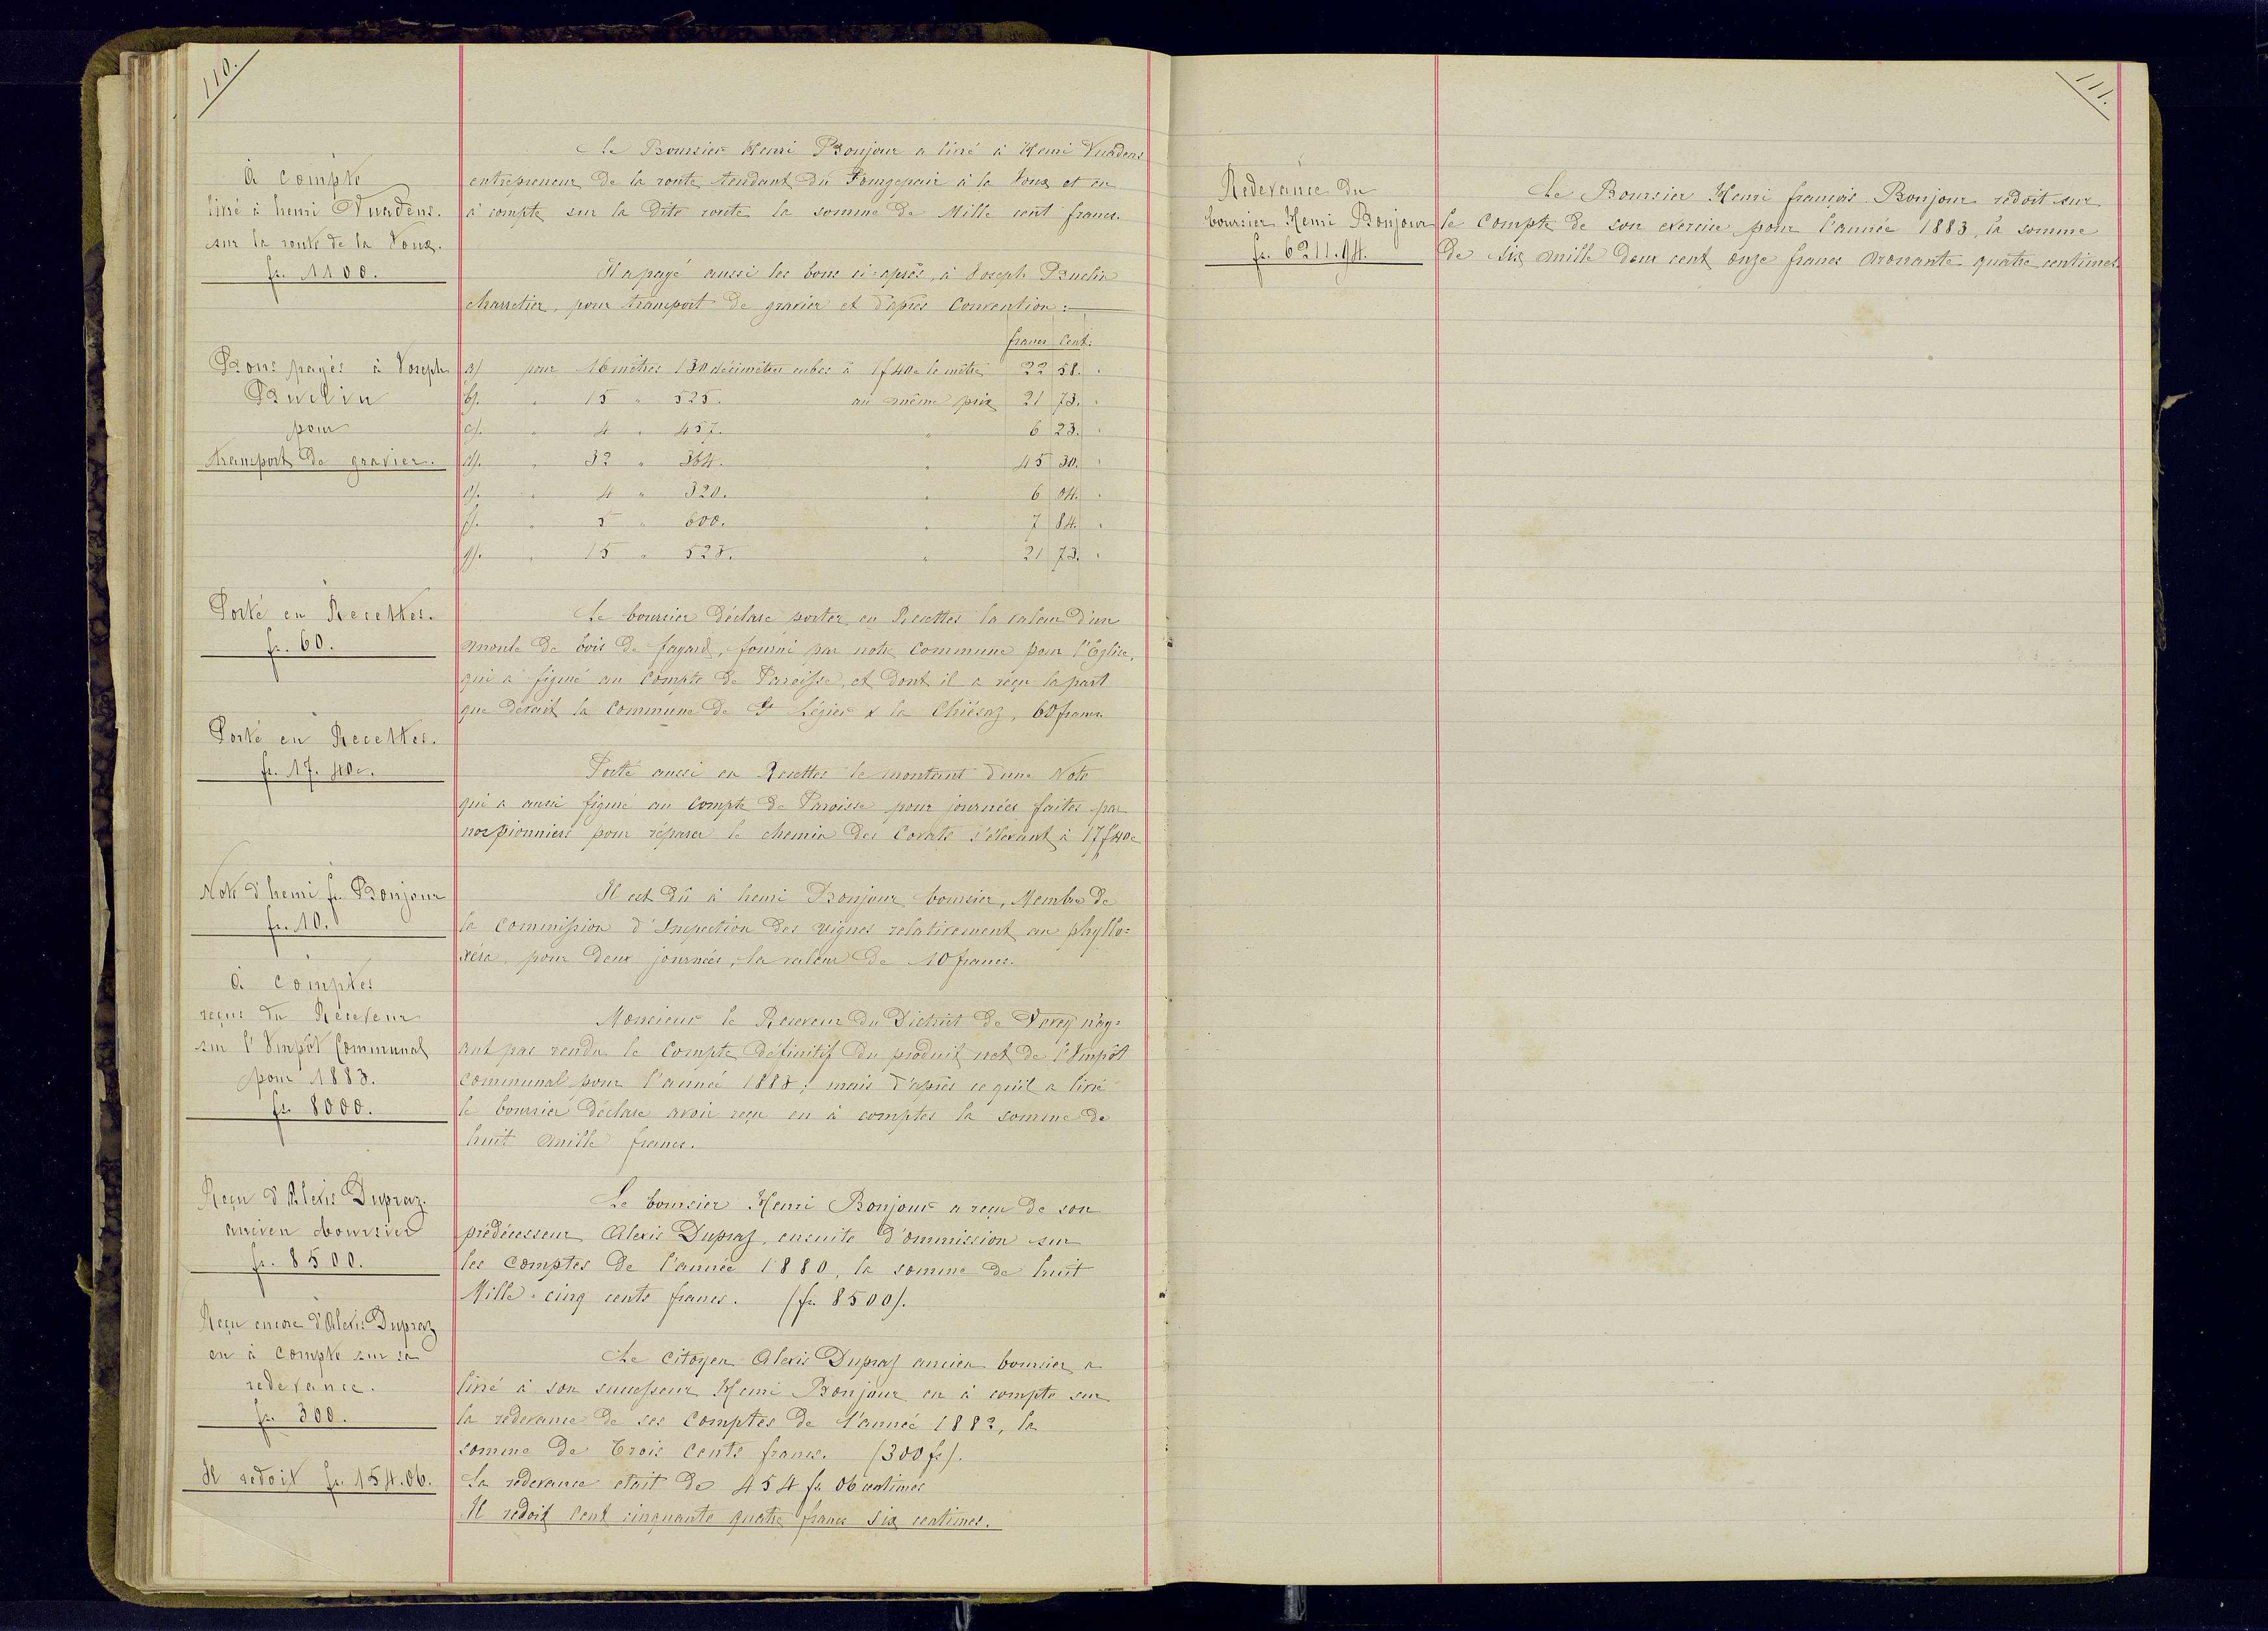 110.
À compte
livré à henri Vuadens.
sur la route de la Vouz.
fr. 1100.
Le Boursier Henri Bonjour a livré à Henri Vuadens
entrepreneur de la route tendant du à la Vouz et en
à compte sur la dite route la somme de Mille cent francs.
Il a payé aussi les bons ci-après, à Joseph Buclin
charretier, pour transport de gravier et d'après Convention :
francs Cent.
Bons payés à Joseph
Buclin
pour
transport de gravier.
a). pour 16 mètres 130 décimètres cubes à 1 f 40c le mètre 22 58. "
b). " 15 " 525. au même prix 21 73. "
c). " 4 " 457. " 6 23. "
d). " 32 " 364. " 45 30. "
e). " 4 " 320. " 6 04. "
f). " 5 " 600. " 7 84. "
g). " 15 " 528. " 21 73. "
Porté en Recettes.
fr. 60.
Le boursier déclare porter en Recettes la valeur d'un
moule de bois de fayard, fourni par notre Commune pour l'Eglise,
qui a figuré au Compte de Paroisse, et dont il a reçu la part
que devait la Commune de St Légier & la Chiésaz, 60 francs.
Porté en Recettes.
fr. 17. 40c.
Porté aussi en Recettes le montant d'une Note
qui a aussi figuré au Compte de Paroisse pour journées faites par
nos pionniers pour réparer le chemin des s'élevant à 17 f 40c
Note d'henri fr. Bonjour
fr. 10.
Il est dû à henri Bonjour, boursier, Membre de
la Commission d'Inspection des vignes relativement au phyllo=
xéra, pour deux journées, la valeur de 10 francs.
à Comptes
reçus du Receveur
sur l'Impôt Communal
pour 1883.
fr. 8000.
Monsieur le Receveur du District de Vevey n'ay=
ant pas rendu le Compte définitif du produit net de l'Impôt
Communal pour l'année 1883 ; mais d'après ce qu'il a livré
le boursier déclare avoir reçu en à comptes la somme de
huit mille francs.
Reçu d'Alexis Dupraz.
ancien boursier
fr. 8500.
Le boursier Henri Bonjour a reçu de son
prédécesseur Alexis Dupraz, ensuite d'ommission sur
les Comptes de l'année 1880, la somme de huit
Mille-cinq cents francs. (fr. 8500).
Reçu encore d'Alexis Dupraz
en à Compte sur sa
redevance.
fr. 300.
Le Citoyen Alexis Dupraz ancien boursier a
livré à son successeur Henri Bonjour en à compte sur
la redevance de ses Comptes de l'année 1882, la
somme de Trois Cents francs. (300 fr).
Il redoit fr. 154.06.
Sa redevance etait de 454 fr 06 centimes
Il redoit Cent cinquante quatre francs six centimes.
111.
Redevance du
boursier Henri Bonjour
fr. 6211.94.
Le Boursier Henri françois Bonjour redoit sur
le Compte de son exercice pour l'année 1883, la somme
de Six mille deux cent onze francs nonante-quatre centimes.